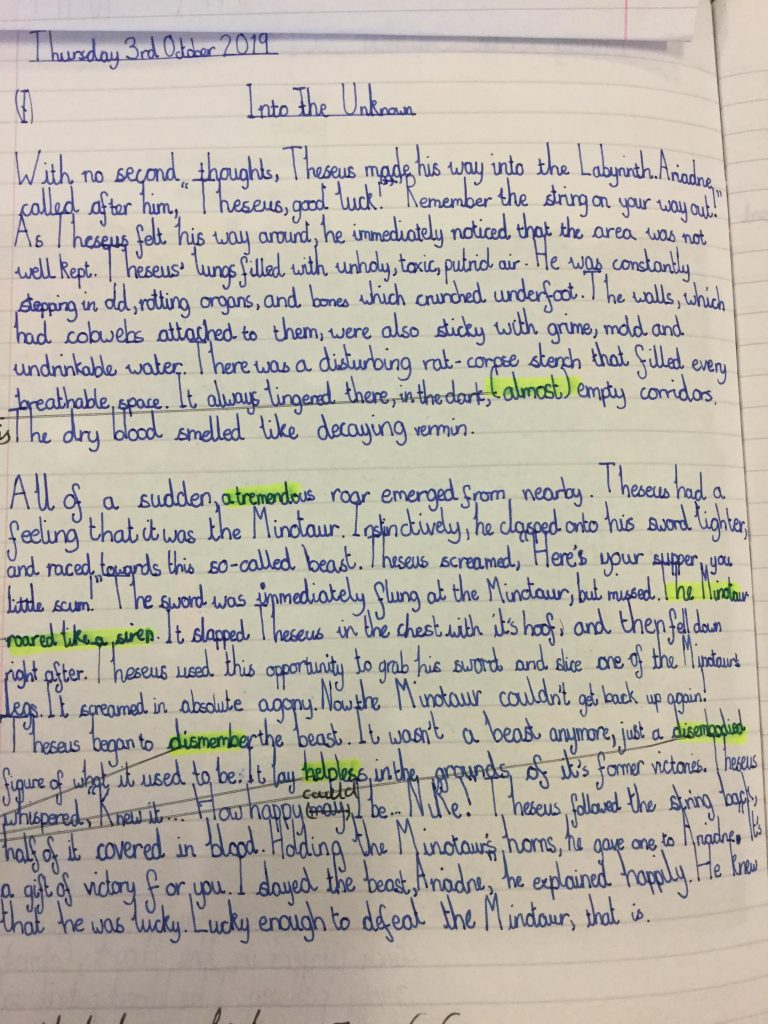 Thursday 3rd October 2019
(I)
Into The Unknown
With no second thoughts, Theseus made his way into the Labyrinth. Ariadne
called after him, "Theseus, good luck! Remember the string on your way out!"
As Theseus felt his way around, he immediately noticed that the area was not
well kept. Theseus' lungs filled with unholy, toxic, putrid air. He was constantly
stepping in old, rotting organs, and bones which crunched underfoot. The walls, which
had cobwebs attached to them, were also sticky with grime, mold and
undrinkable water. There was a disturbing rat-corpse stench that filled every
breathable space. It always lingered there, in the dark, (almost) empty corridors.
The dry blood smelled like decaying vermin.
All of a sudden, a tremendous roar emerged from nearby. Theseus had a
feeling that it was the Minotaur. Instinctively, he clasped onto his sword tighter,
and raced towards this so-called beast. Theseus screamed, "Here's your supper, you
little scum!" The sword was immediately flung at the Minotaur, but missed. The Minotaur
roared like a siren. It slapped Theseus in the chest with it's hoof, and then fell down
right after. Theseus used this opportunity to grab his sword and slice one of the Minotaur's
legs. It screamed in absolute agony. Now the Minotaur couldn't get back up again!
Theseus began to dismember the beast. It wasn't a beast anymore, just a disembodied
figure of what it used to be. It lay helpless in the grounds of it's former victories. Theseus
whispered, Knew it... How happy could I be... Nike! Theseus followed the string back,
half of it covered in blood. Holding the Minotaur's horns, he gave one to Ariadne. It's
a gift of victory for you. I slayed the beast, Ariadne, he explained happily. He knew
that he was lucky. Lucky enough to defeat the Minotaur, that is.